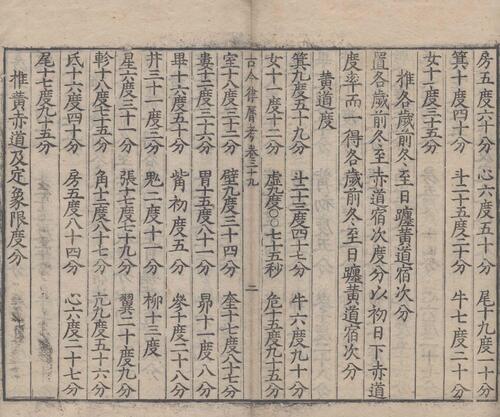 房五度六十分 心六度五十分 尾十九度一十分
箕十度四十分 斗二十五度二十分 牛七度二十分
女十一度三十五分
推各歲前冬至日躔黃道宿次分
置各歲前冬至赤道宿次度分以初日下赤道
度率而一得各歲前冬至日躔黃道宿次分
黃道度
箕九度五十九分 斗二十三度四十七分 牛六度九十分
女十一度十二分 虛九度〇〇七十五秒 危十五度九十五分
古今律曆考卷三十九 二
室十八度三十二分 壁九度三十四分 奎十七度八十七分
婁十二度三十六分 胃十五度八十一分 昴十一度八分
畢十六度五十分 觜初度五分 參十度二十八分
井三十一度三分 鬼二度十一分 柳十三度
星六度三十一分 張十七度七十九分 翼二十度九分
軫十八度七十五分 角十二度八十七分 亢九度五十六分
氐十六度四十分 房五度八十四分 心六度二十七分
尾十七度九十五分
推黃赤道及定象限度分